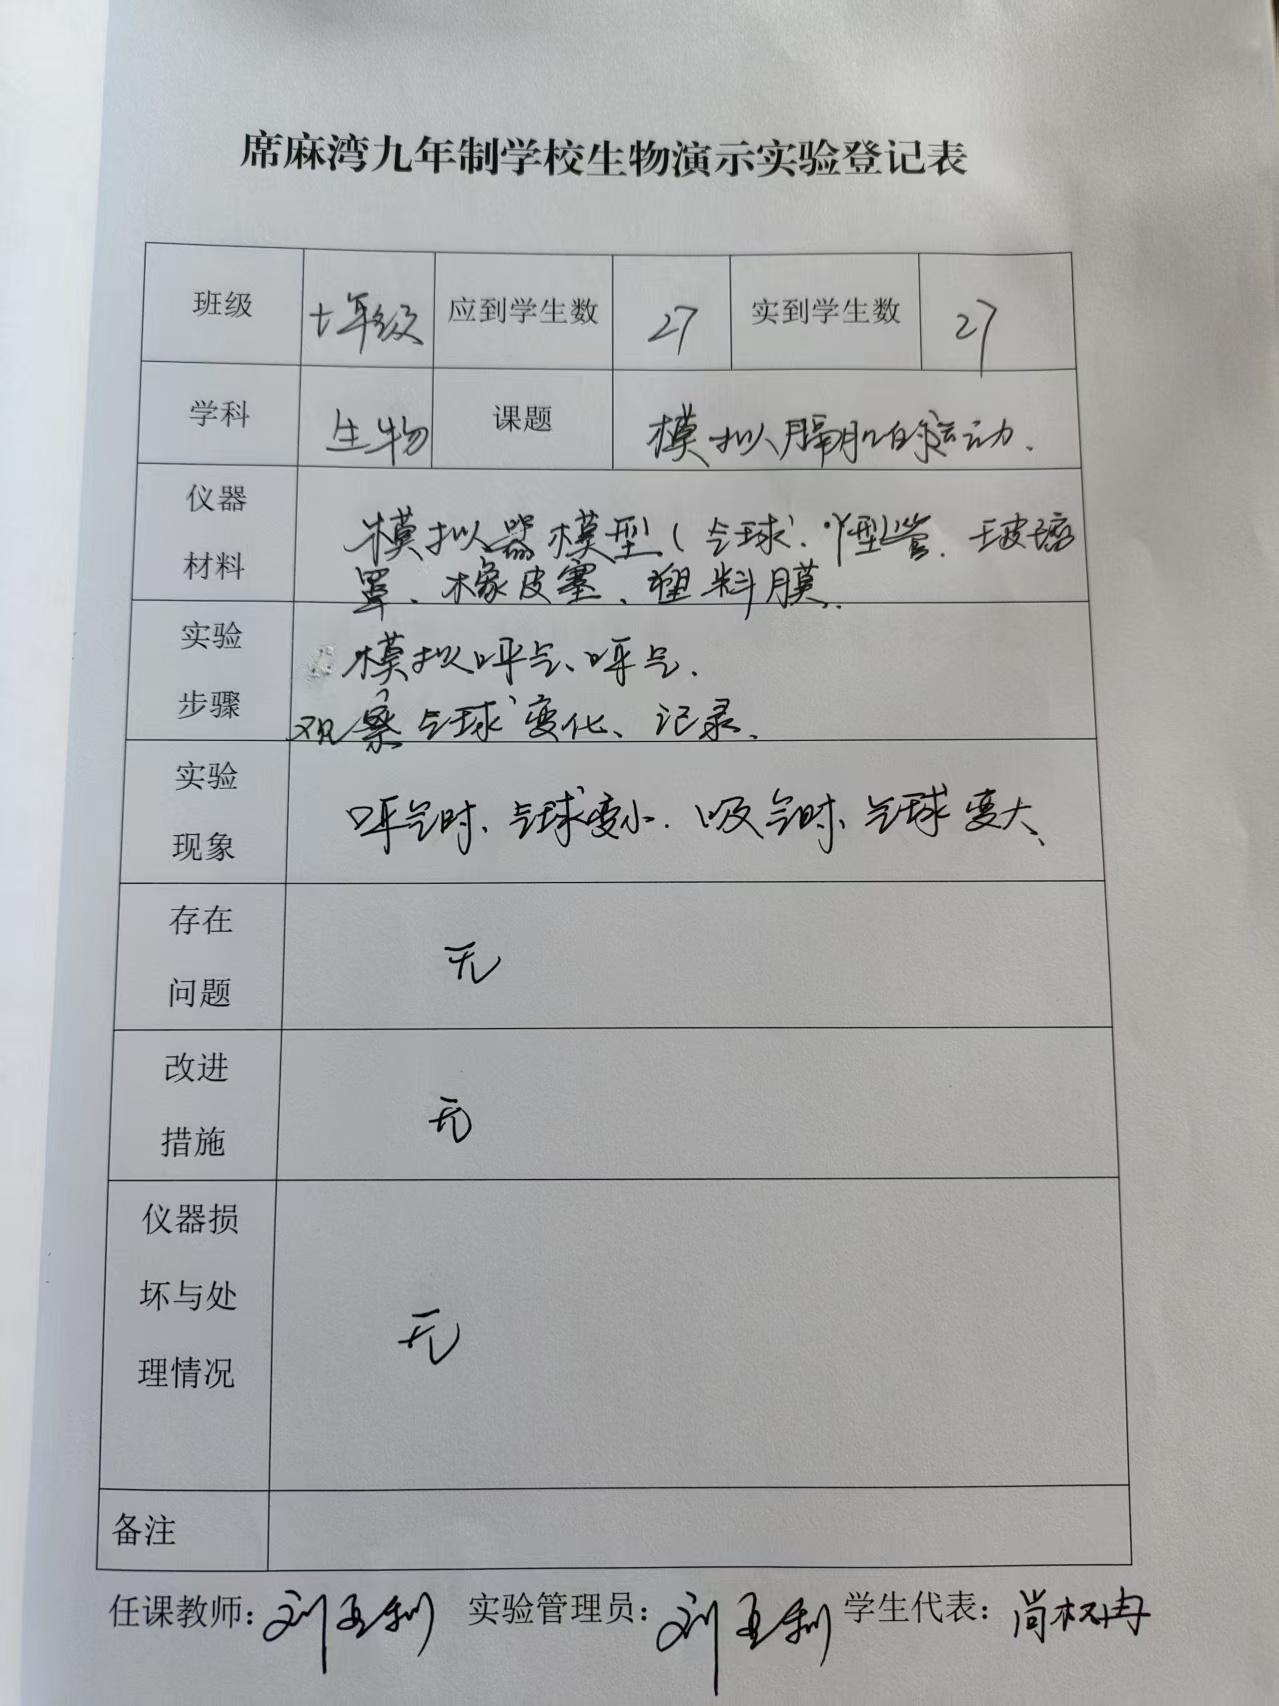 席麻湾九年制学校生物演示实验登记表
班级 七年级 应到学生数 27 实到学生数 27
学科 生物 课题 模拟膈肌的运动.
仪器 模拟器模型(气球、Y型管、玻璃
材料 罩、橡皮塞、塑料膜.
实验 模拟呼气、呼气.
步骤 观察气球变化、记录.
实验 呼气时、气球变小.吸气时、气球变大、
现象
存在 无
问题
改进 无
措施
仪器损
坏与处 无
理情况
备注
任课教师: 刘 利 实验管理员: 刘 利 学生代表: 尚